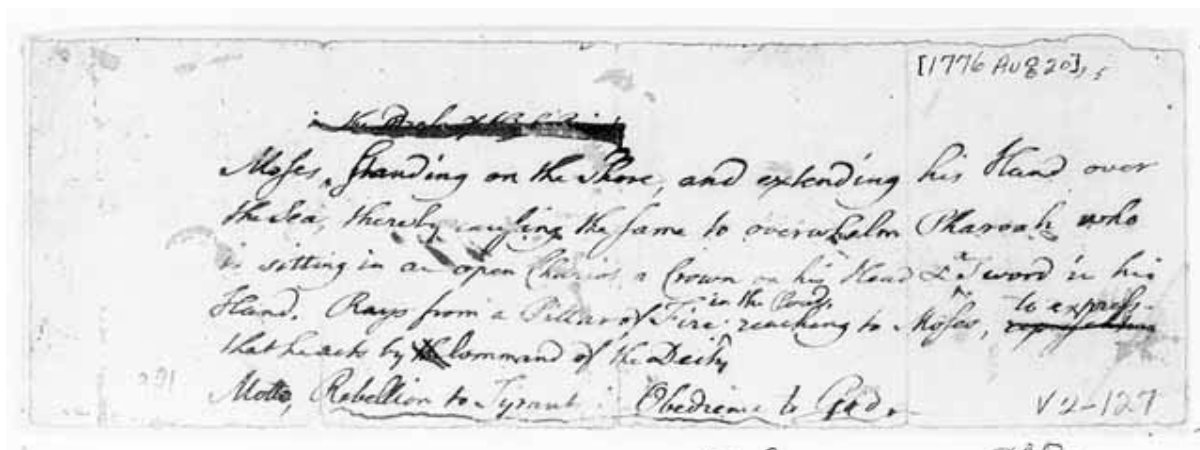 [1776 Aug 20],
Moses standing on the Shore, and extending his Hand over
the Sea, thereby causing the same to overwhelm Pharoah who
is sitting in an open Chariot, a Crown on his Head & a Sword in his
Hand. Rays from a Pillar of Fire in the Clouds reaching to Moses, to express
that he acts by Command of the Deity
Motto, Rebellion to Tyrants is Obedience to God.
V2-127